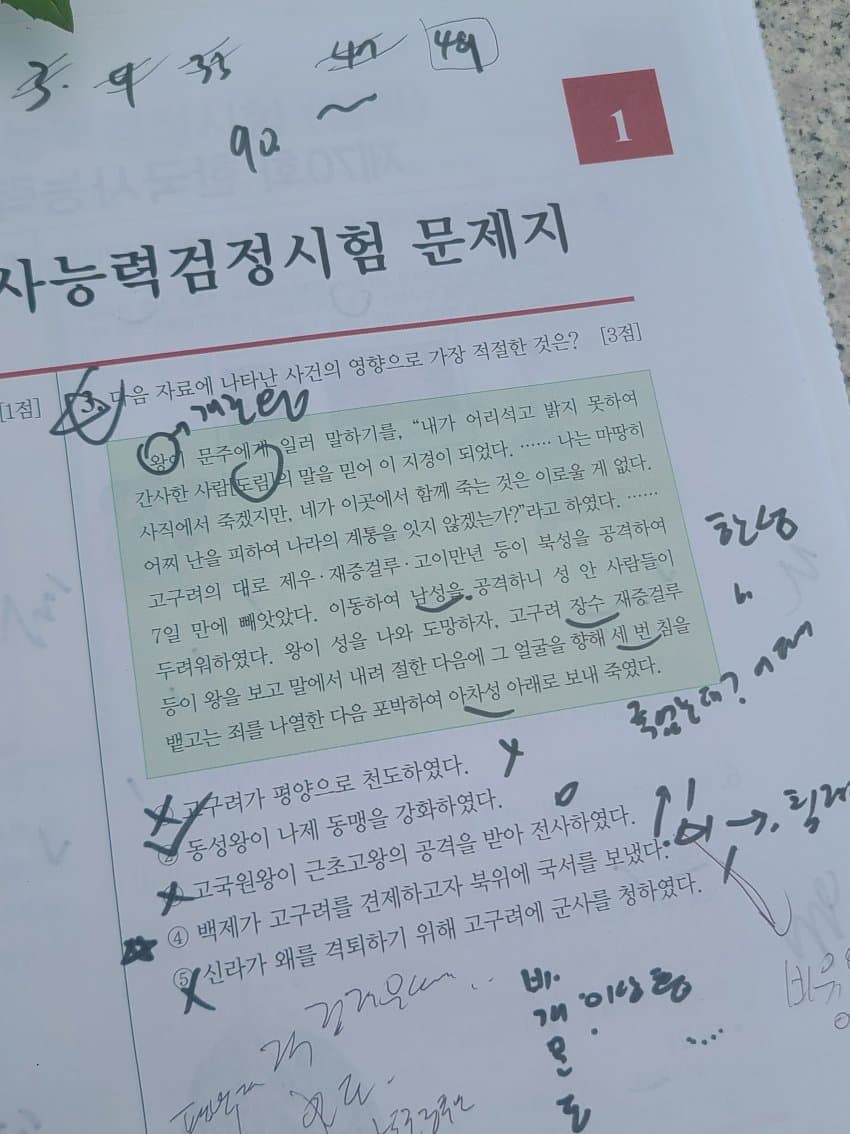 3. 9 33 47 49
90 ~
1
사능력검정시험 문제지
[1점]
3. 다음 자료에 나타난 사건의 영향으로 가장 적절한 것은? [3점]
개로왕
왕이 문주에게 일러 말하기를, “내가 어리석고 밝지 못하여
간사한 사람[도림]의 말을 믿어 이 지경이 되었다. …… 나는 마땅히
사직에서 죽겠지만, 네가 이곳에서 함께 죽는 것은 이로울 게 없다.
어찌 난을 피하여 나라의 계통을 잇지 않겠는가?”라고 하였다. ……
고구려의 대로 제우·재증걸루·고이만년 등이 북성을 공격하여
7일 만에 빼앗았다. 이동하여 남성을 공격하니 성 안 사람들이
두려워하였다. 왕이 성을 나와 도망하자, 고구려 장수 재증걸루
등이 왕을 보고 말에서 내려 절한 다음에 그 얼굴을 향해 세 번 침을
뱉고는 죄를 나열한 다음 포박하여 아차성 아래로 보내 죽였다.
한성
① 고구려가 평양으로 천도하였다.
② 동성왕이 나제 동맹을 강화하였다.
③ 고국원왕이 근초고왕의 공격을 받아 전사하였다.
④ 백제가 고구려를 견제하고자 북위에 국서를 보냈다.
⑤ 신라가 왜를 격퇴하기 위해 고구려에 군사를 청하였다.
비.
개
문